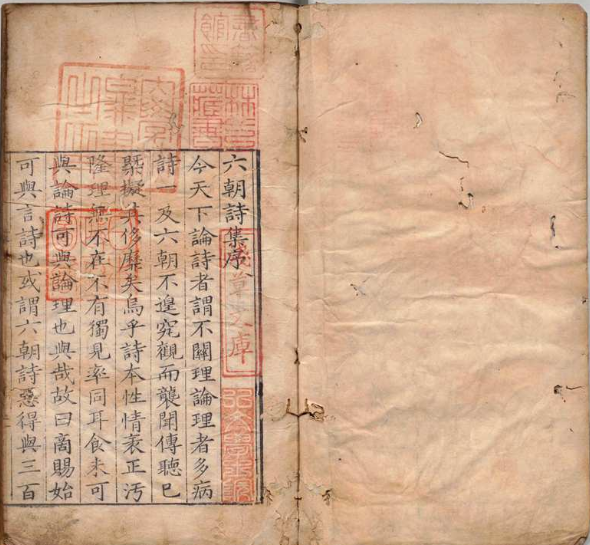 林氏藏書
淺草文庫
弘文學士院
六朝詩集序
今天下論詩者謂不關理論理者多病
詩一及六朝不遑究觀而襲聞傳聽已
槩擬其侈靡矣烏乎詩本性情衺正汚
隆理無不在不有獨見率同耳食未可
與論詩可與論理也與哉故曰商賜始
可與言詩也或謂六朝詩惡得與三百